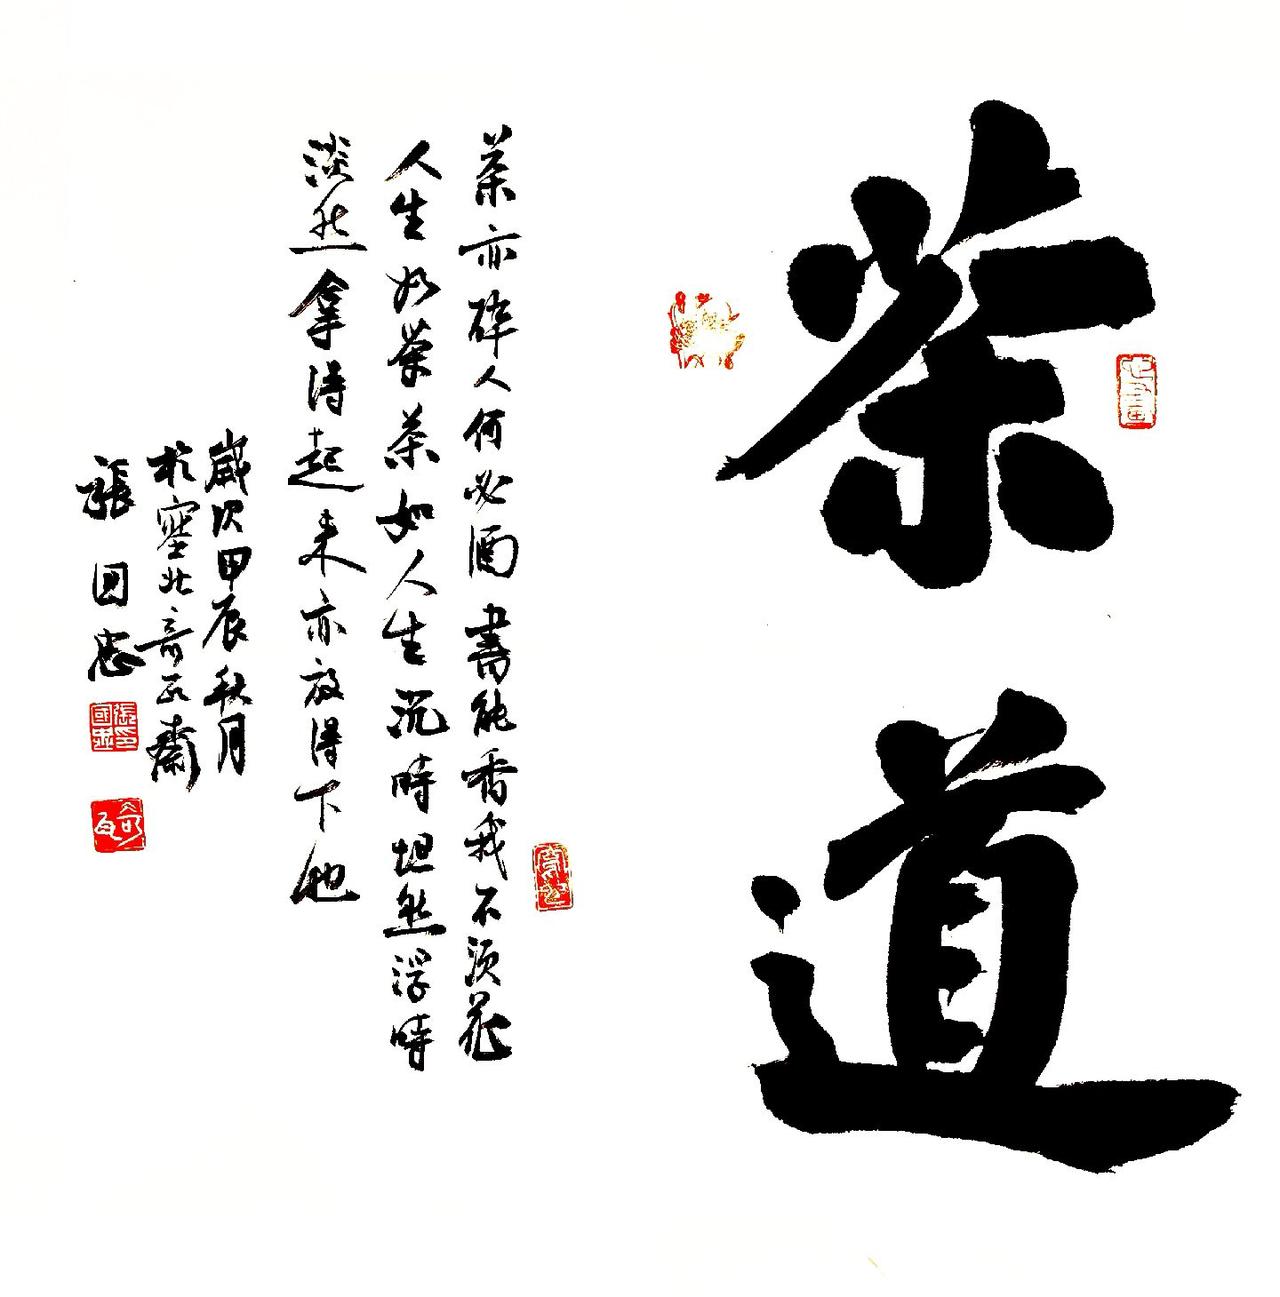 茶道
茶亦醉人何必酒書能香我不須花
人生如茶茶如人生沉時坦然浮時
淡然拿得起来亦放得下也
歲次甲辰秋月
於塞北奇石齋
張国忠
張印國忠